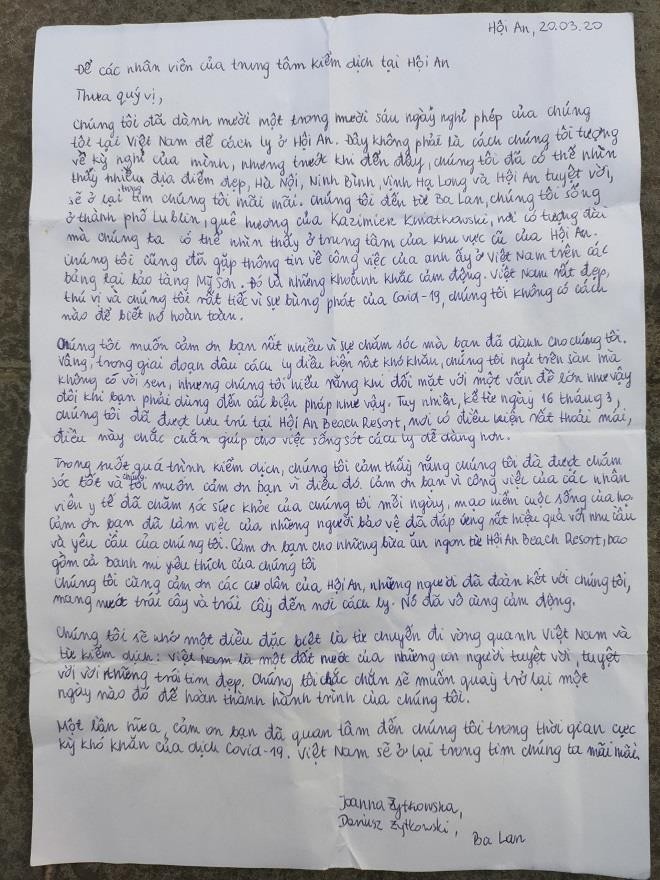 Hội An, 20.03.20
Để các nhân viên của trung tâm kiểm dịch tại Hội An
Thưa quý vị,
Chúng tôi đã dành mười một trong mười sáu ngày nghỉ phép của chúng
tôi tại Việt Nam để cách ly ở Hội An. Đây không phải là cách chúng tôi tượng
về kỳ nghỉ của mình, nhưng trước khi đến đây, chúng tôi đã có thể nhìn
thấy nhiều địa điểm đẹp, Hà Nội, Ninh Bình, Vịnh Hạ Long và Hội An tuyệt vời,
sẽ ở lại trong tim chúng tôi mãi mãi. Chúng tôi đến từ Ba Lan, chúng tôi sống
ở thành phố Lublin, quê hương của Kazimier Kwiatkowski, nơi có tượng đài
mà chúng ta có thể nhìn thấy ở trung tâm của khu vực cũ của Hội An.
Chúng tôi cũng đã gặp thông tin về công việc của anh ấy ở Việt Nam trên các
bảng tại bảo tàng Mỹ Sơn. Đó là những khoảnh khắc cảm động. Việt Nam rất đẹp,
thú vị và chúng tôi rất tiếc vì sự bùng phát của Covid-19, chúng tôi không có cách
nào để biết nó hoàn toàn.
Chúng tôi muốn cảm ơn bạn rất nhiều vì sự chăm sóc mà bạn đã dành cho chúng tôi.
Vâng, trong giai đoạn đầu cách ly điều kiện rất khó khăn, chúng tôi ngủ trên sàn mà
không có vòi sen, nhưng chúng tôi hiểu rằng khi đối mặt với một vấn đề lớn như vậy
đôi khi bạn phải dùng đến các biện pháp như vậy. Tuy nhiên, kể từ ngày 16 tháng 3,
chúng tôi đã được lưu trú tại Hội An Beach Resort, nơi có điều kiện rất thoải mái,
điều này chắc chắn giúp cho việc sống sót cách ly dễ dàng hơn.
Trong suốt quá trình kiểm dịch, chúng tôi cảm thấy rằng chúng tôi đã được chăm
sóc tốt và chúng tôi muốn cảm ơn bạn vì điều đó. Cảm ơn bạn vì công việc của các nhân
viên y tế đã chăm sóc sức khỏe của chúng tôi mỗi ngày, mạo hiểm cuộc sống của họ.
Cảm ơn bạn đã làm việc của những người bảo vệ đã đáp ứng rất hiệu quả với nhu cầu
và yêu cầu của chúng tôi. Cảm ơn bạn cho những bữa ăn ngon từ Hội An Beach Resort, bao
gồm cả Banh mi yêu thích của chúng tôi
Chúng tôi cũng cảm ơn các cư dân của Hội An, những người đã đoàn kết với chúng tôi,
mang nước trái cây và trái cây đến nơi cách ly. Nó đã vô cùng cảm động.
Chúng tôi sẽ nhớ một điều đặc biệt là từ chuyến đi vòng quanh Việt Nam và
từ kiểm dịch: Việt Nam là một đất nước của những con người tuyệt vời, tuyệt
vời với những trái tim đẹp. Chúng tôi chắc chắn sẽ muốn quay trở lại một
ngày nào đó để hoàn thành hành trình của chúng tôi.
Một lần nữa, cảm ơn bạn đã quan tâm đến chúng tôi trong thời gian cực
kỳ khó khăn của dịch Covid-19. Việt Nam sẽ ở lại trong tim chúng ta mãi mãi.
Joanna Żytkowska,
Dariusz Żytkowski,
Ba Lan